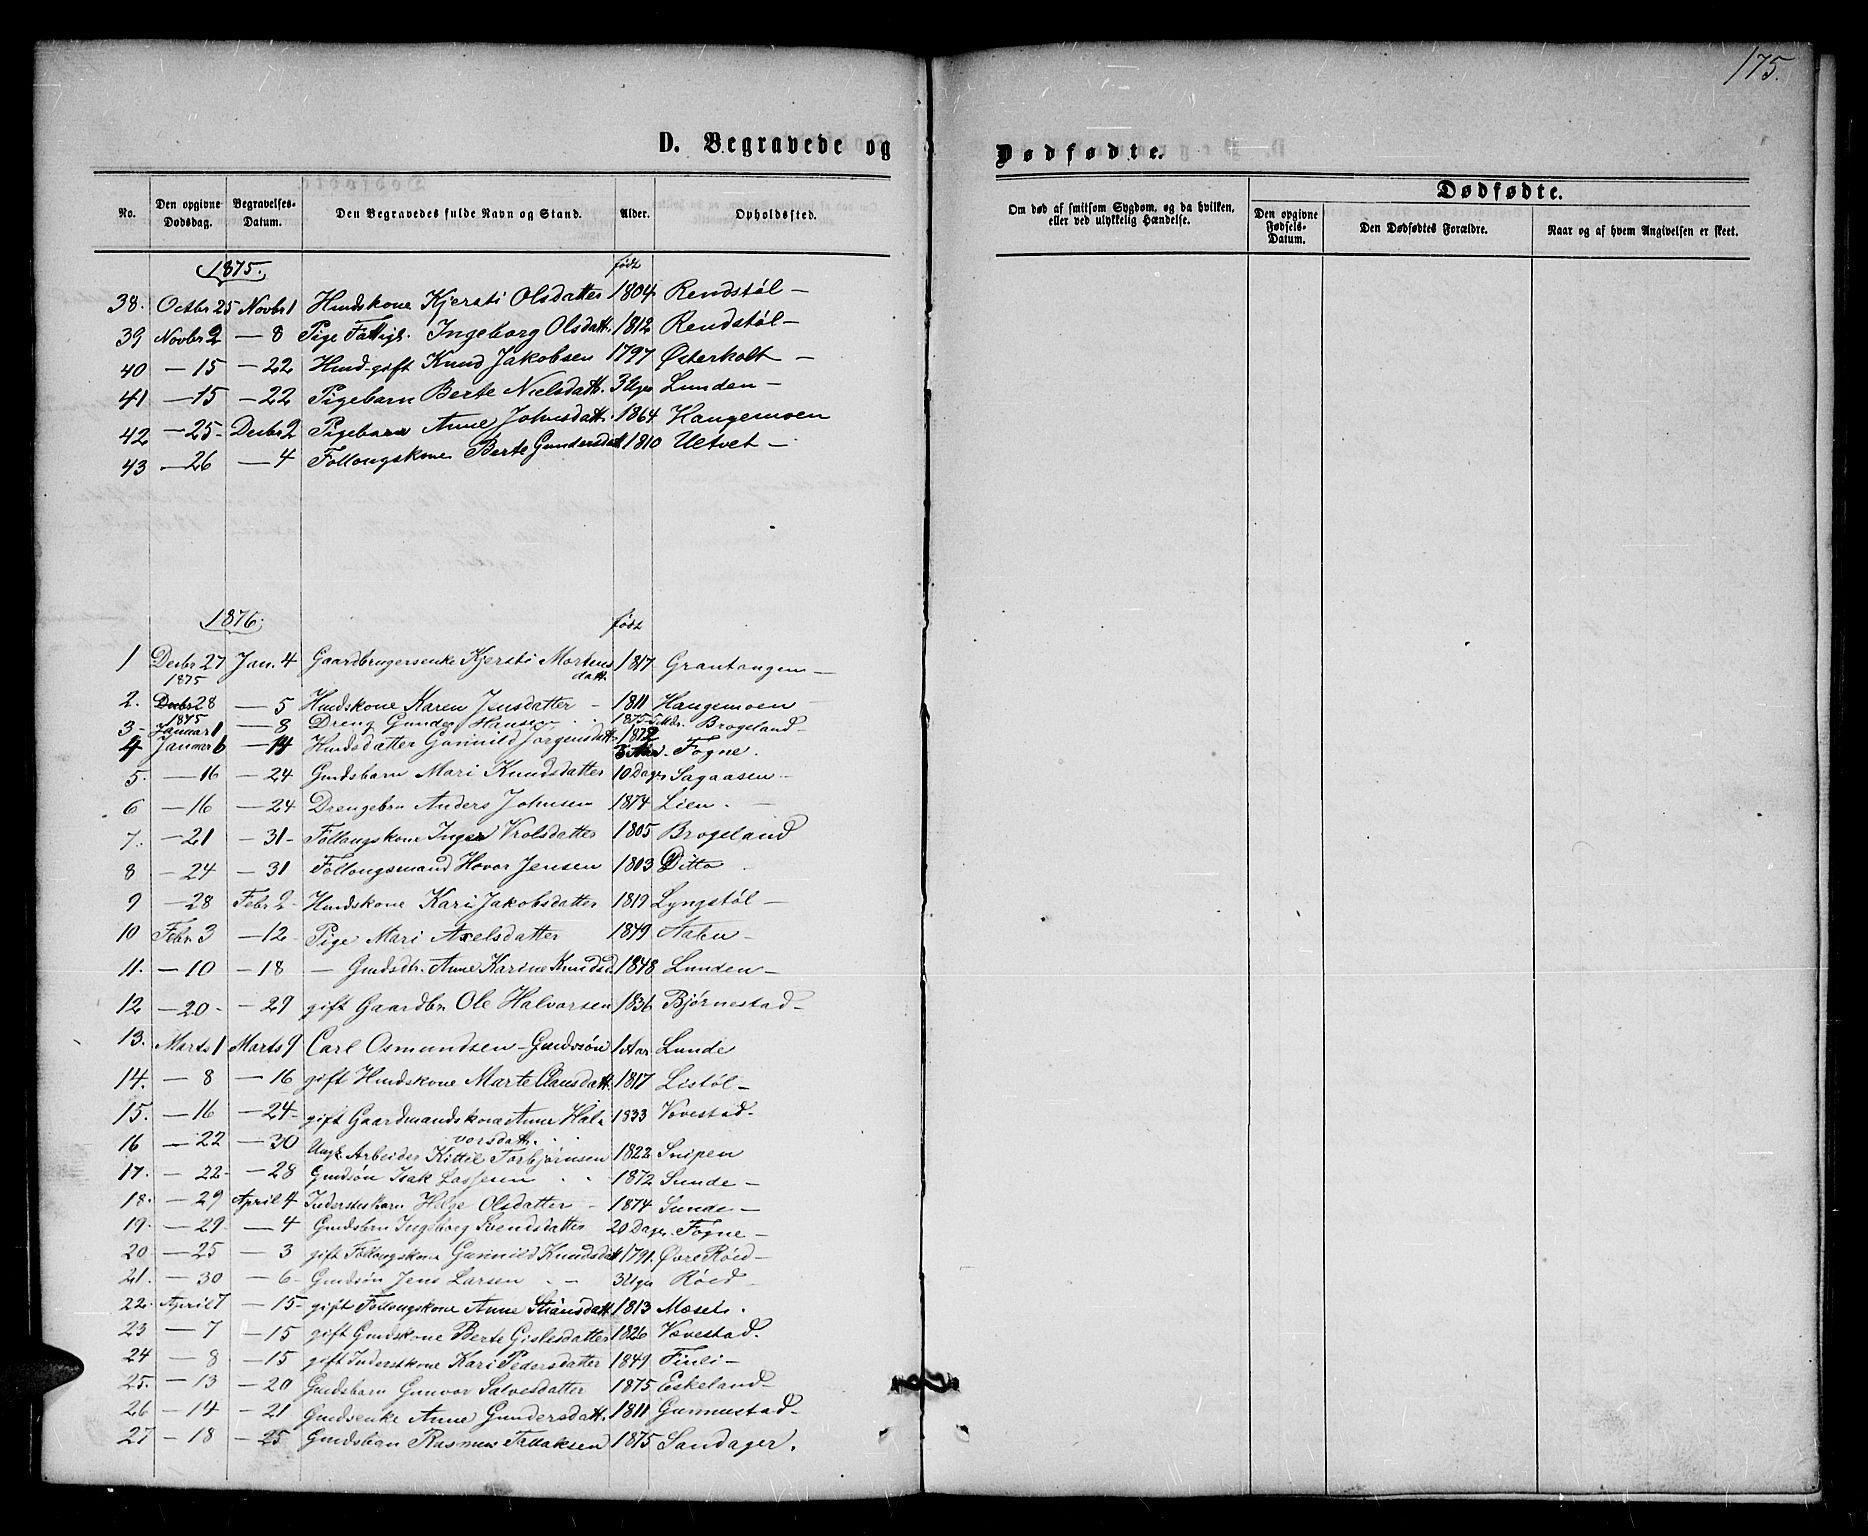 175.
D. Begravede og
Dødfødte.
No. Den opgivne Dødsdag. Begravelses-Datum. Den Begravedes fulde Navn og Stand. Alder. Opholdssted.
Om død af smitsom Sygdom, og da hvilken, eller ved ulykkelig Hændelse.
Dødfødte.
Den opgivne Fødsels-Datum. Den Dødfødtes Forældre. Naar og af hvem Angivelsen er skeet.
1875. født
38. Octbr 25 Novbr 1 Hmdskone Kjersti Olsdatter 1804 Rendstøl —
39 Novbr 2 — 8 Pige Fattigl. Ingeborg Olsdatt. 1812 Rendstøl —
40 — 15 — 22 Hmd. gift Knud Jakobsen 1797 Østerholt —
41 — 15 — 22 Pigebarn Berte Nielsdatt. 3 Uger Lunden —
42 — 25 — Decbr 2 Pigebarn Anne Johnsdatt. 1864 Haugemoen
43 — 26 — 4 Føllougskone Berte Gundersdatt 1810 Ultvet —
1876. født
1 Decbr 27 Jan. 4 Gaardbrugerenke Kjersti Mortens 1817 Grantangen —
1875 datt.
2. Decbr 28 — 5 Hmdskone Karen Jensdatter — 1811 Haugemoen —
1875
3 — Januar 1 — 8 Dreng Gunder Hansen 1875 5 Mdr. Brogeland —
4 Januar 6 — 14 Hmdsdatter Gunnild Jørgensdatt. 1872 Fogne.
5. — 16 — 24 Gmdsbarn Mari Knudsdatter 10 Dage Sagaasen —
6 — 16 — 24 Drengebrn Anders Johnsen 1874 Lien. —
7. — 21 — 31 — Føllougskone Inger Vrolsdatter 1805 Brogeland
8 — 24 — 31 Føllougsmand Hovor Jensen 1803 Ditto
9 — 28 Febr 2 — Hmdskone Kari Jakobsdatter 1819 Lyngstøl —
10 Febr. 3 — 12 — Pige Mari Axelsdatter 1849 Aaben —
11. — 10 — 18 — Gmdsdtr. Anne Karine Knudsd. 1848 Lunden —
12 — 20 — — 29 gift Gaardbr Ole Halvorsen 1836 Bjørnestad —
13. Marts 1 Marts 9 Carl Osmundsen — Gmdssøn 1 Aar Lunde
14. — 8 — 16 gift Hmdskone Marte Clausdatt. 1817 Listøl —
15. — 16 — 24 — gift Gaardmandskone Anne Hal- 1833 Vovestad —
vorsdatt.
16 — 22 — 30 Ungk. Arbeider Kittil Torbjørnsen 1822 Snipen
17. — 22 — — 28 Gmdsøn Isak Lassesen 1872 Sunde —
18. — 29 April 4 Inderstesbarn Helge Olsdatter — 1874 Sunde —
19. — 29 — — 4 Gmdsbrn Ingeborg Svendsdatter 20 Dage Fogne —
20 — 25 — 3 gift Føllougskone Gunnild Knudsdatt 1791. Øvre Røed —
21. — 30 — 6 — Gmdsøn Jens Larsen 3 Uger Røed —
22. April 7 — 15 — gift Føllougskone Anne Stiansdatt. 1813 Moseid.
23 — 7 — 15 gift Gmdskone Berte Gislesdatter 1826 Vovestad.
24 — 8 — 15 gift Inderstkone Kari Pedersdatter 1849 Finli —
25. — 13 — 20 Gmdsbarn Gunvor Salvesdatter 1875 Eskeland —
26 — 14 — 21 Gmdsenke Anne Gundersdatt. 1811 Gunnestad —
27 — 18 — 25 Gmdsbarn Rasmus Tellaksen 1875 Sandager.